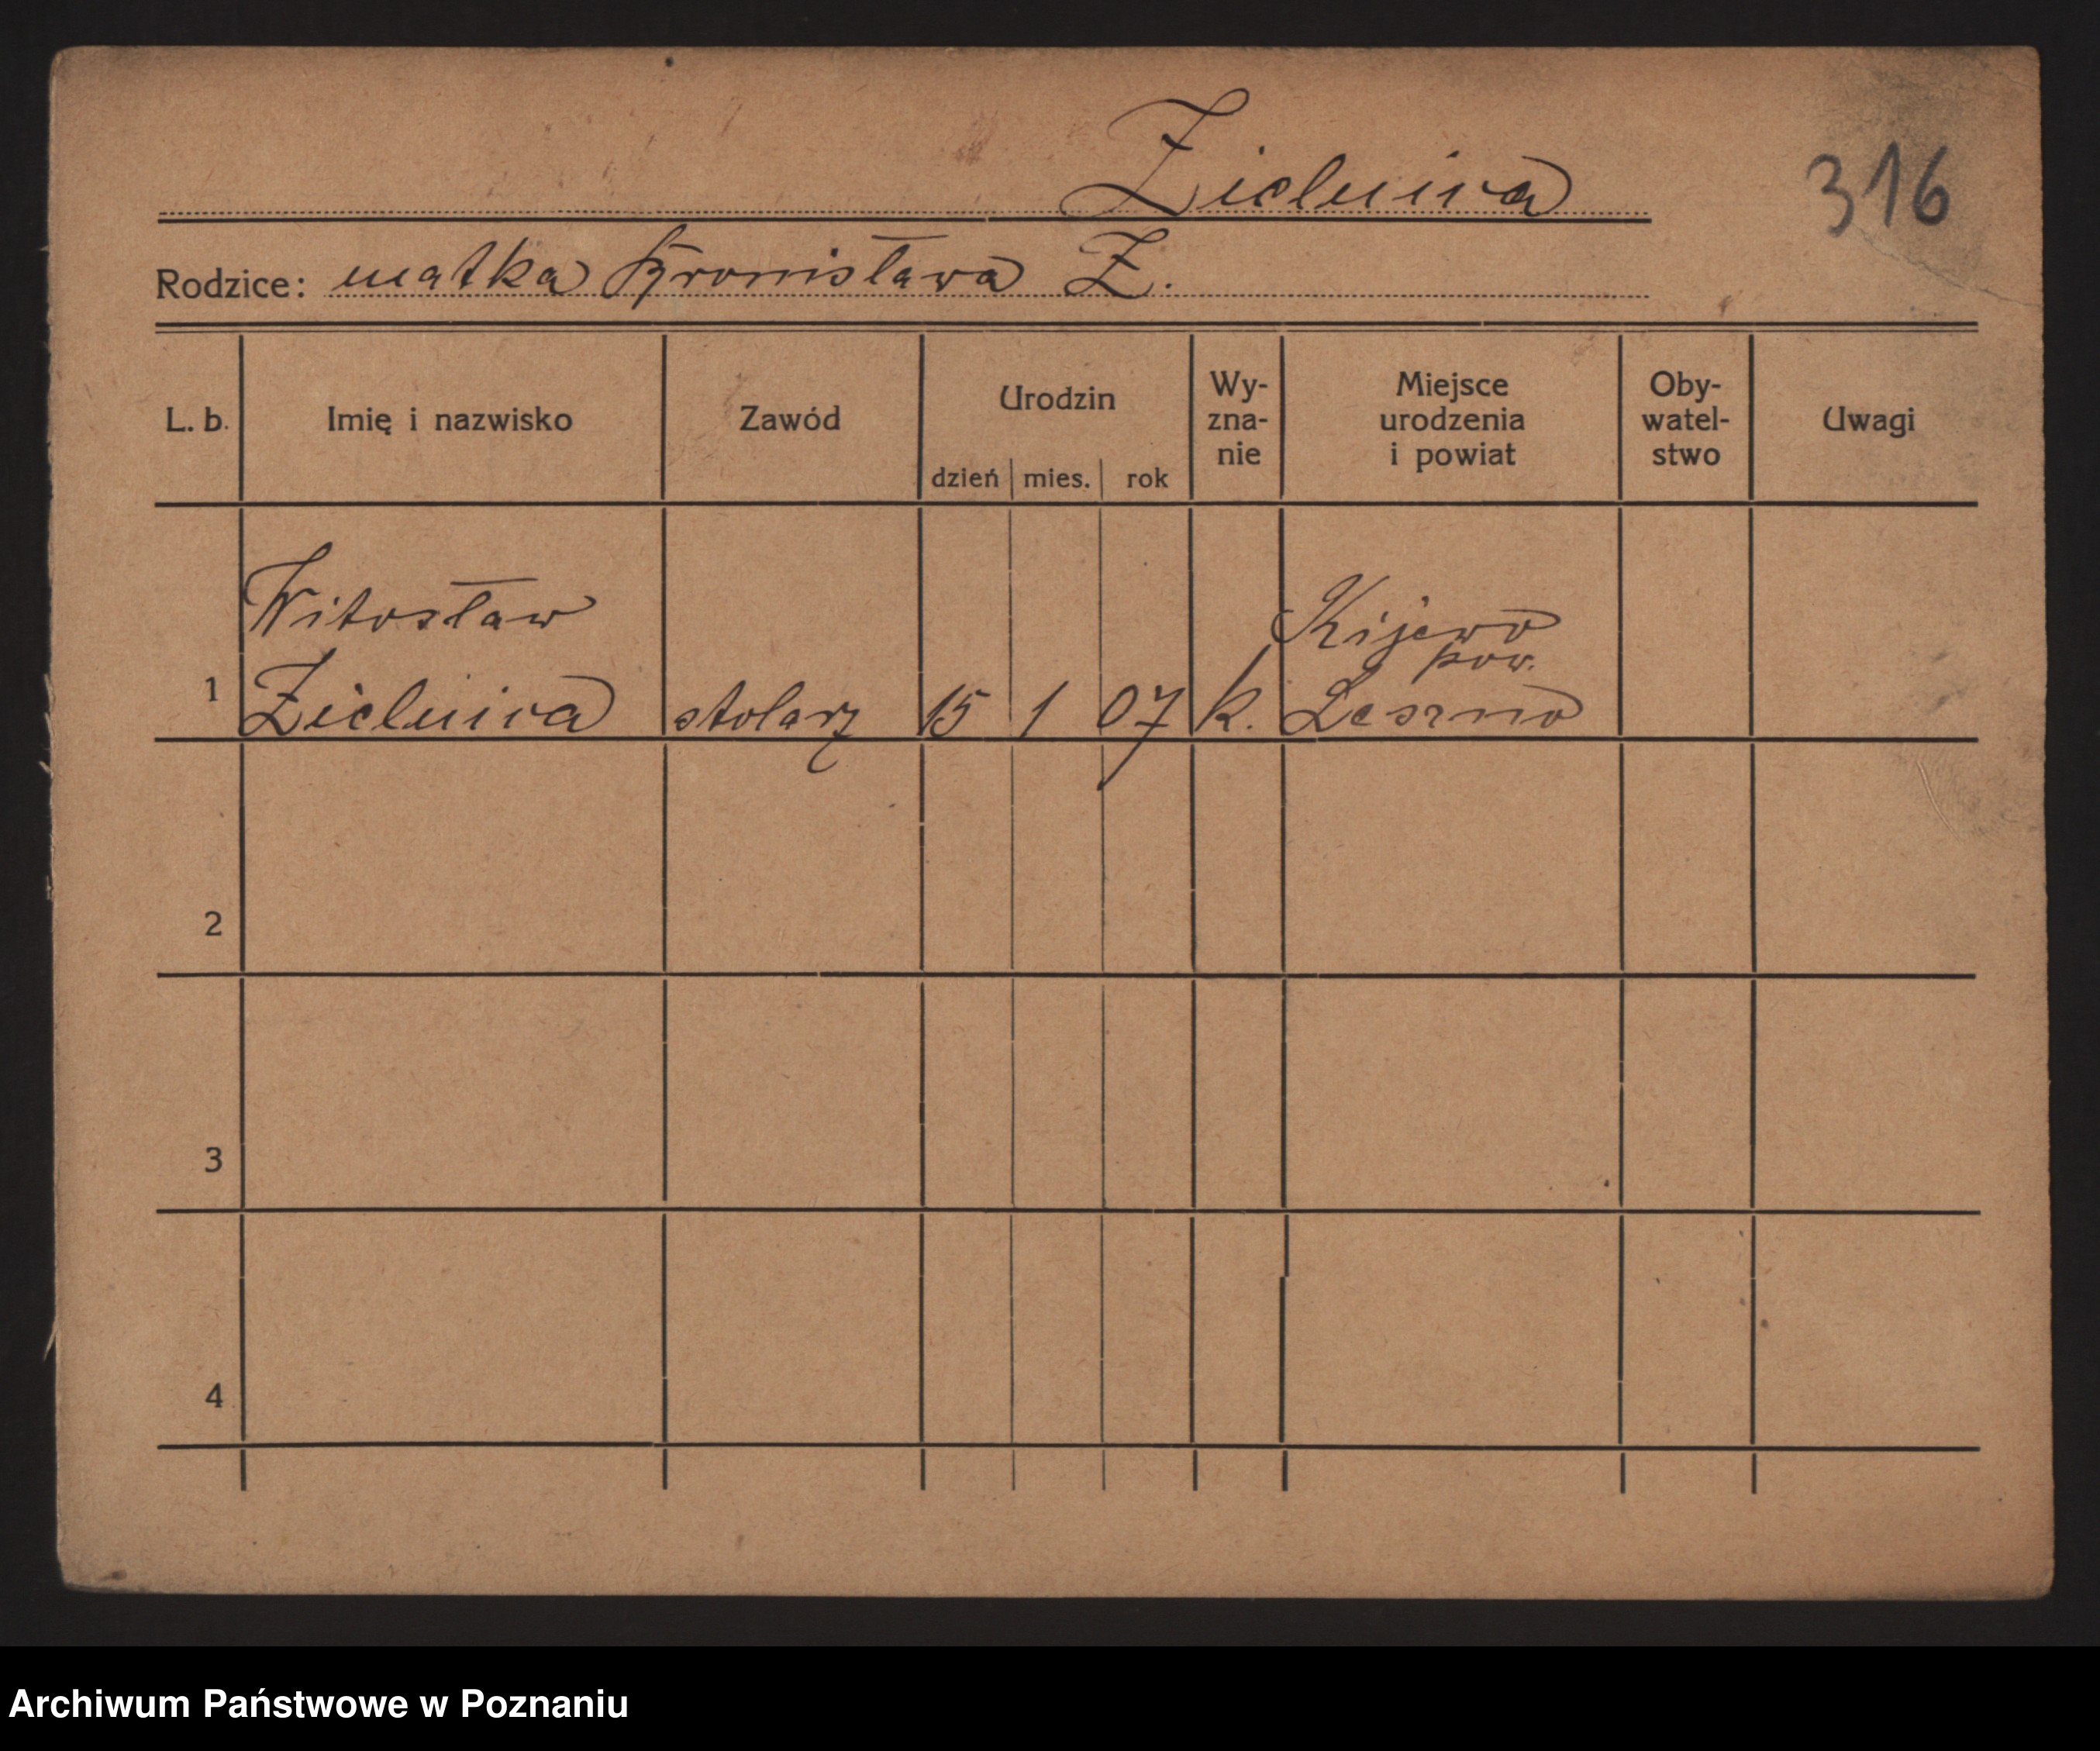 Zielnica
316
Rodzice: matka Bronisława Z.
L. b. Imię i nazwisko Zawód Urodzin dzień mies. rok Wy- zna- nie Miejsce urodzenia i powiat Oby- watel- stwo Uwagi
Witosław Kijewo
pow.
1 Zielnica stolarz 15 1 07 k. Leszno
2
3
4
Archiwum Państwowe w Poznaniu